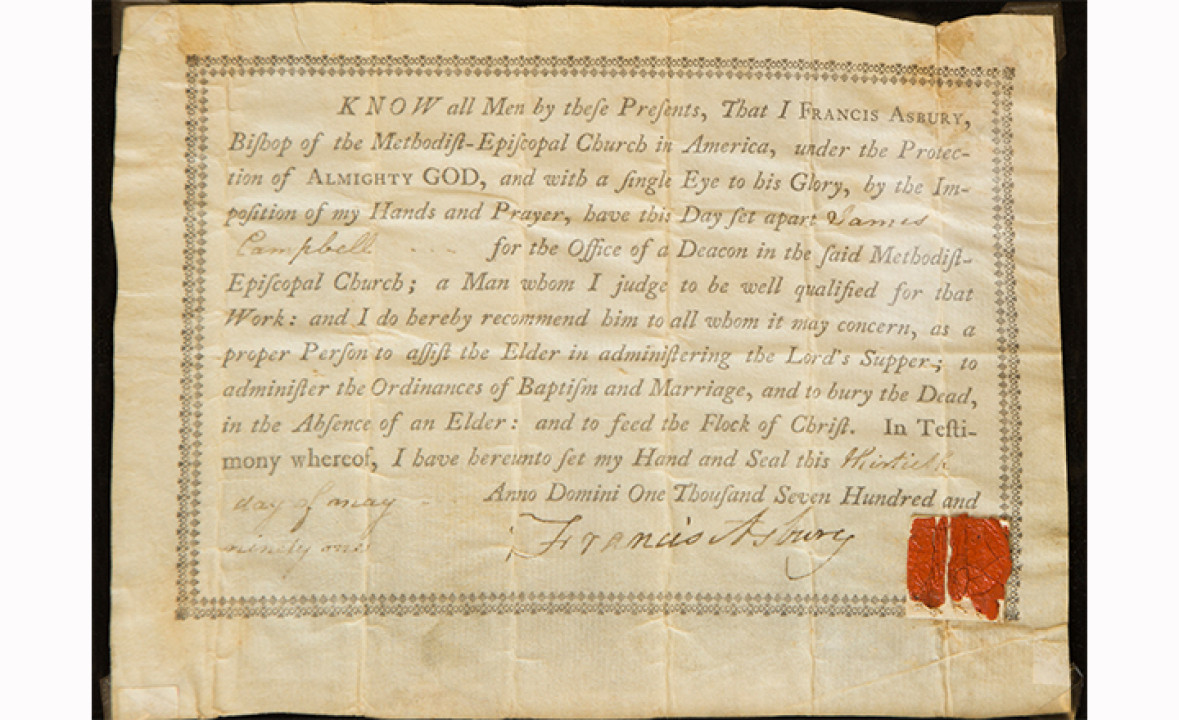 KNOW all Men by theſe Preſents, That I FRANCIS ASBURY,
Biſhop of the Methodiſt-Epiſcopal Church in America, under the Protec-
tion of ALMIGHTY GOD, and with a ſingle Eye to his Glory, by the Im-
poſition of my Hands and Prayer, have this Day ſet apart James
Campbell - - - for the Office of a Deacon in the ſaid Methodiſt-
Epiſcopal Church; a Man whom I judge to be well qualified for that
Work: and I do hereby recommend him to all whom it may concern, as a
proper Perſon to aſſiſt the Elder in adminiſtering the Lord's Supper; to
adminiſter the Ordinances of Baptiſm and Marriage, and to bury the Dead,
in the Abſence of an Elder: and to feed the Flock of Chriſt. In Teſti-
mony whereof, I have hereunto ſet my Hand and Seal this thirtieth
day of may - Anno Domini One Thouſand Seven Hundred and
ninety one Francis Asbury